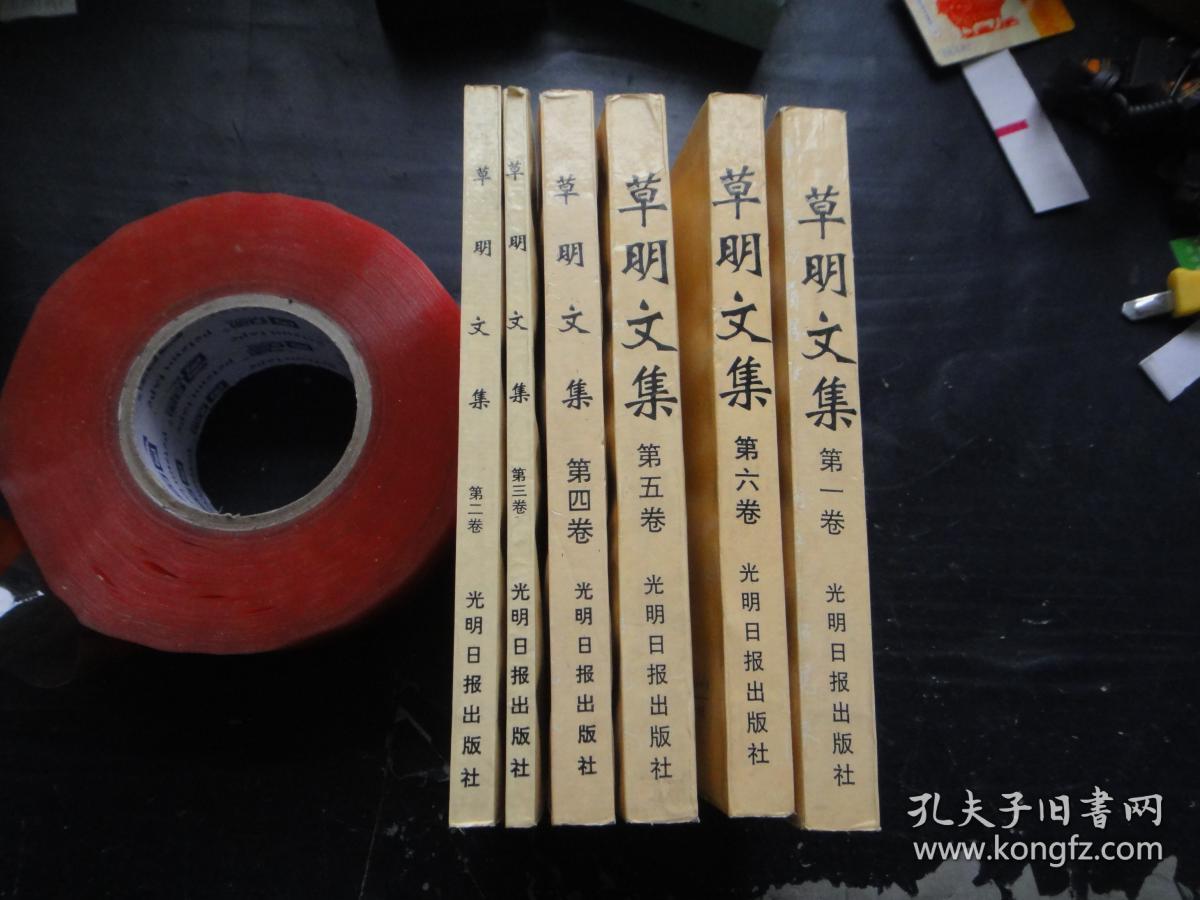 草明文集 第二卷 光明日报出版社
草明文集 第三卷 光明日报出版社
草明文集 第四卷 光明日报出版社
草明文集 第五卷 光明日报出版社
草明文集 第六卷 光明日报出版社
草明文集 第一卷 光明日报出版社
孔夫子旧書网
www.kongfz.com